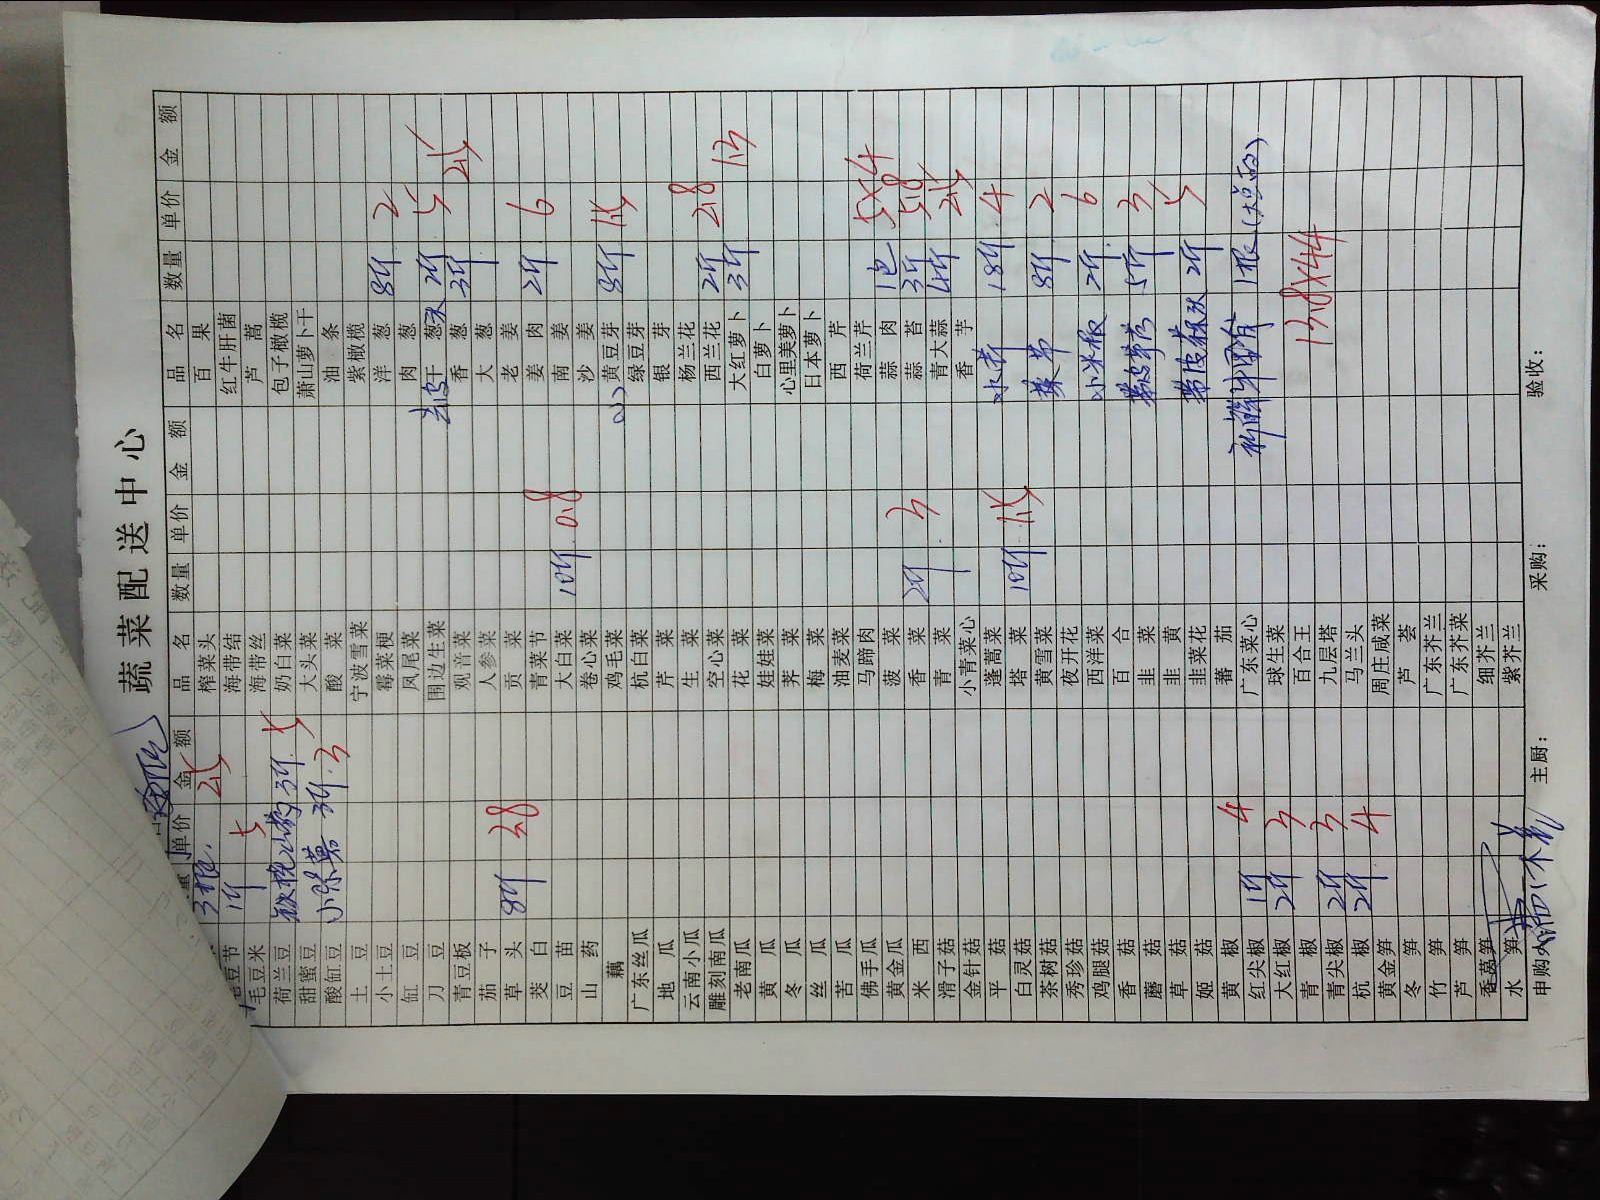 蔬菜配送中心
单价 金额 品名 数量 单价 金额 品名 数量 单价 金额
毛豆节 3根 2.5
毛豆米 1斤 5
荷兰豆 铁棍山药 3斤 5
甜蜜豆
酸缸豆 3斤 3
土豆
小土豆
缸豆
刀豆
青豆板
茄子
草头 8斤 3.8
茭白
豆苗
山药
藕
广东丝瓜
地瓜
云南小瓜
雕刻南瓜
老南瓜
黄瓜
冬瓜
丝瓜
苦瓜
佛手瓜
黄金瓜
米西
滑子菇
金针菇
平菇
白灵菇
茶树菇
秀珍菇
鸡腿菇
香菇
蘑菇
草菇
姬菇
黄椒 1斤 4
红尖椒 2斤 3
大红椒
青椒 2斤 3
青尖椒 2斤 4
杭椒
黄金笋
冬笋
竹笋
芦笋
香莴笋
水笋
榨菜头
海带结
海带丝
奶白菜
大头菜
酸菜
宁波雪菜
霉菜梗
凤尾菜
围边生菜
观音菜
人参菜
贡菜
青菜节
大白菜 10斤 0.8
卷心菜
鸡毛菜
杭白菜
芹菜
生菜
空心菜
花菜
娃娃菜
荠菜
梅菜
油麦菜
马蹄肉
菠菜
香菜 2斤 3
青菜
小青菜心
蓬蒿菜
塔菜 10斤 1.5
黄雪菜
夜开花
西洋菜
百合
韭菜
韭黄
韭菜花
蕃茄
广东菜心
球生菜
百合王
九层塔
马兰头
周庄咸菜
芦荟
广东芥兰
广东芥菜
细芥兰
紫芥兰
百果
红牛肝菌
芦蒿
包子橄榄
萧山萝卜干
油条
紫橄榄
洋葱 8斤 2
肉葱
去皮干葱头 2斤 5
香葱 3斤 2.5
大葱
老姜
姜肉 2斤 6
南姜
沙姜
黄豆芽 8斤 1.5
绿豆芽
银芽
杨兰花
西兰花 2斤 2.8
大红萝卜 3斤 1.3
白萝卜
心里美萝卜
日本萝卜
西芹
荷兰芹
蒜肉 1包 5×4
蒜苔 3斤 5.8
青大蒜 4斤 2.5
香芋
水芹 18斤 4
8斤 2
小米椒 2斤 6
5斤 3
2斤 5
1根
13.8×44
申购人 主厨： 采购： 验收：